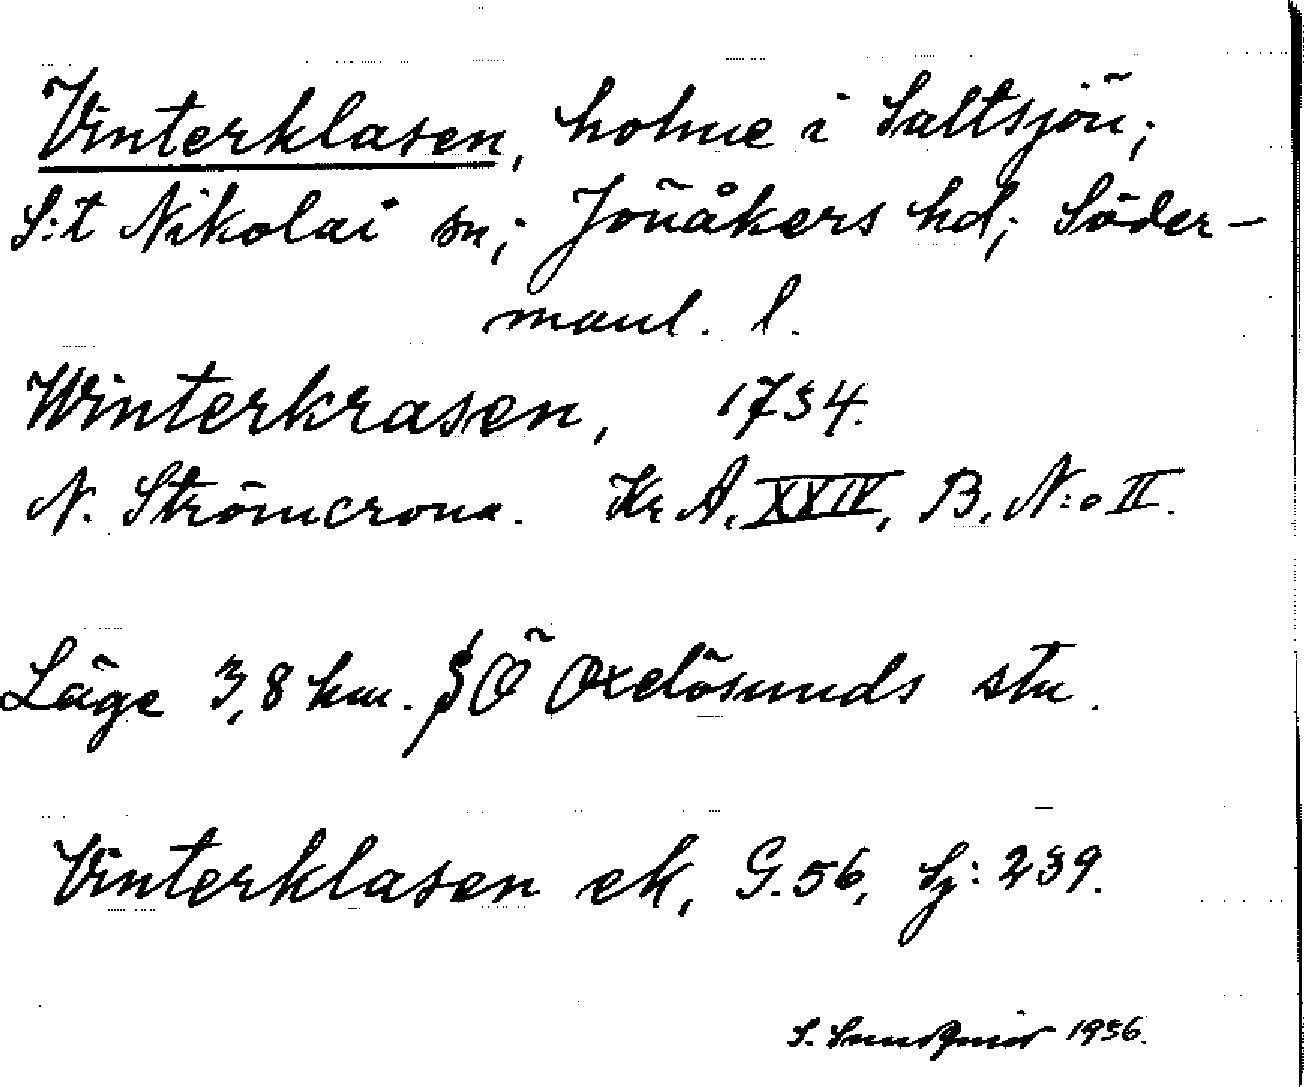 Vinterklasen, holme i Saltsjön;
S:t Nikolai sn; Jönåkers hd; Söder-
manl. l.
Winterkrasen, 1734.
N. Strömcrona. Kr A, XXIV, B, N:o II.
Läge 3,8 km. SÖ Oxelösunds stn.
Vinterklasen ek, G.56, Sj: 239.
S. Sundqvist 1936.